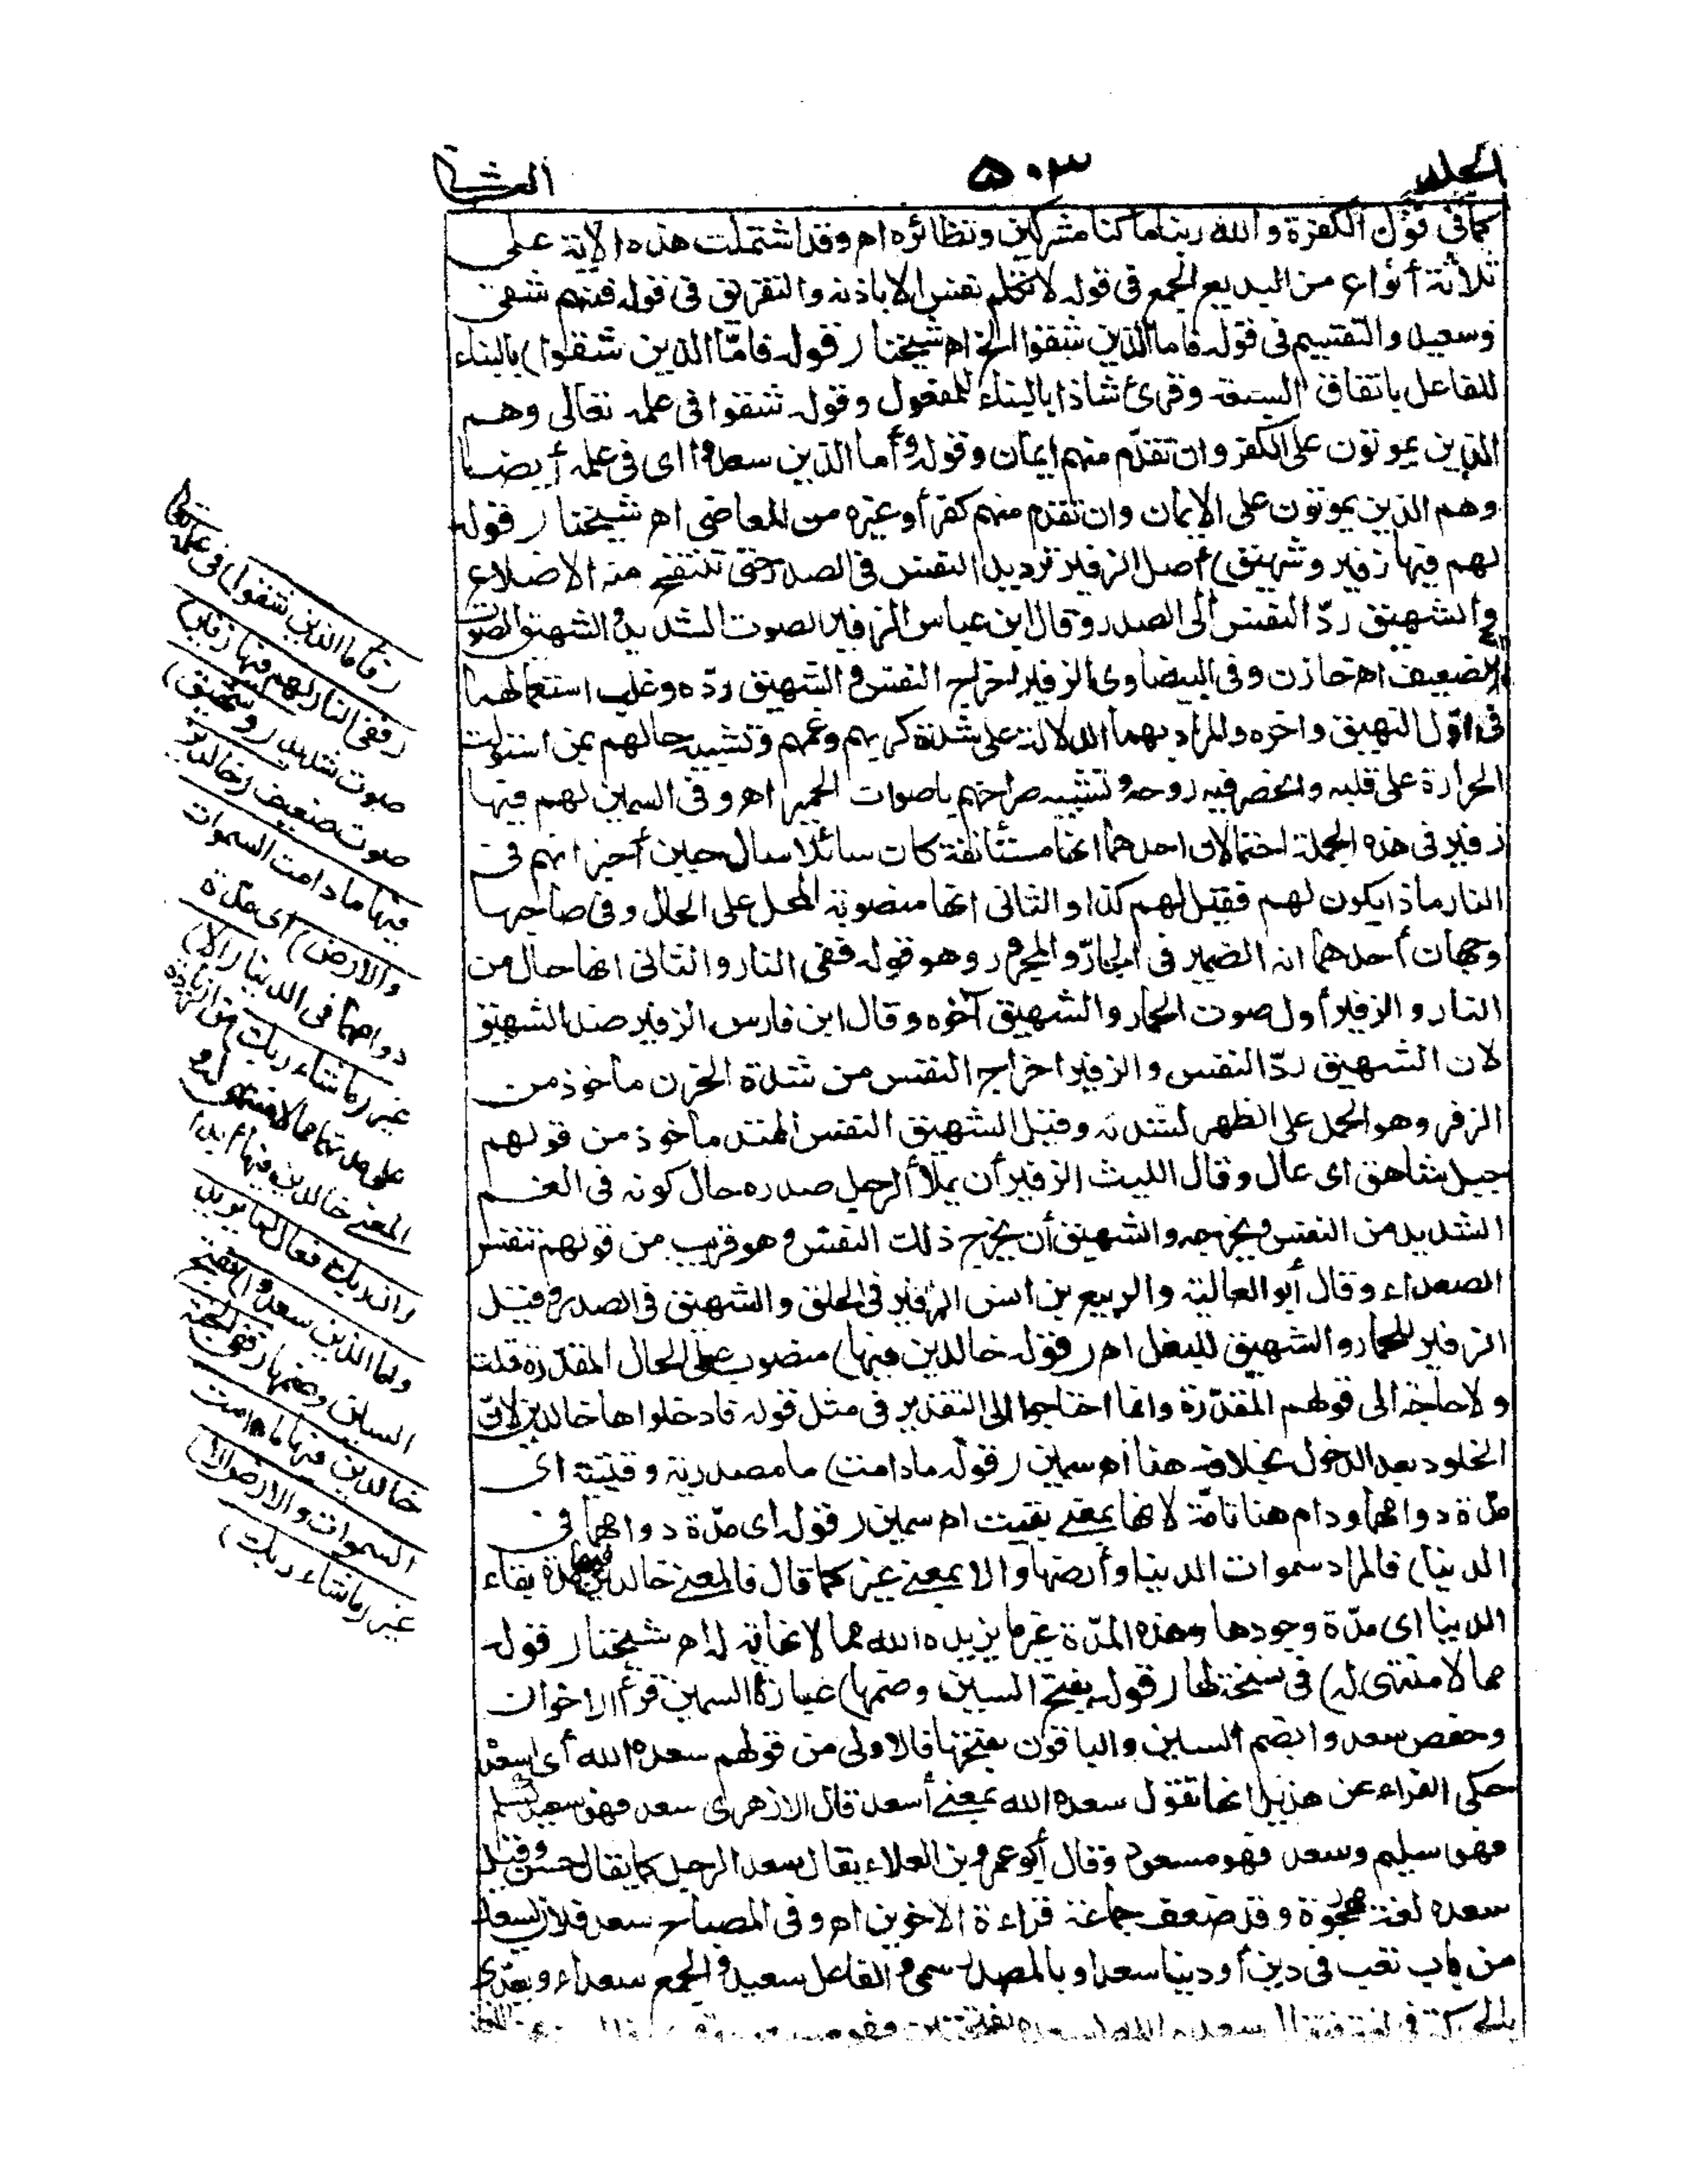 الجلد ٥٠٣ الثانى
كما فى قول الكفرة والله ربنا ما كنا مشركين ونظائره اه وقد اشتملت هذه الاية على
ثلاثة أنواع من البديع الجمع فى قوله لا تكلم نفس الا باذنه والتفريق فى قوله فمنهم شقى
وسعيد والتقسيم فى قوله فاما الذين شقوا الخ اه شيخنا (قوله فامّا الذين شقوا) بالبناء
للفاعل باتفاق السبعة وقرئ شاذا بالبناء للمفعول وقوله شقوا فى علمه تعالى وهم
الذين يموتون على الكفر وان تقدّم منهم ايمان وقوله وأما الذين سعدوا اى فى علمه أيضا
وهم الذين يموتون على الايمان وان تقدم منهم كفر أو غيره من المعاصى اه شيخنا (قوله
لهم فيها زفير وشهيق) أصل الزفير ترديد النفس فى الصدر حتى تنتفخ منه الاضلاع
والشهيق ردّ النفس الى الصدر وقال ابن عباس الزفير الصوت الشديد والشهيق الصوت
الضعيف اه خازن وفى البيضاوى الزفير اخراج النفس والشهيق ردّه وغلب استعمالهما
فى اوّل النهيق واخره والمراد بهما الدلالة على شدّة كربهم وغمهم وتشبيه حالهم بمن استولت
الحرارة على قلبه وانحصر فيه روحه وتشبيه صراخهم باصوات الحمير اه وفى السمين لهم فيها
زفير فى هذه الجملة احتمالان احدهما انها مستأنفة كان سائلا سال حين أخبر انهم فى
النار ماذا يكون لهم فقيل لهم كذا والثانى انها منصوبة المحل على الحال وفى صاحبها
وجهان أحدهما انه الضمير فى الجارّ والمجرور وهو قوله ففى النار والثانى انها حال من
النار والزفير أول صوت الحمار والشهيق آخره وقال ابن فارس الزفير ضد الشهيق
لان الشهيق ردّ النفس والزفير اخراج النفس من شدة الحزن ماخوذ من
الزفر وهو الحمل على الظهر لشدته وقيل الشهيق النفس الممتد ماخوذ من قولهم
جبل شاهق اى عال وقال الليث الزفير أن يملأ الرجل صدره حال كونه فى الغم
الشديد من النفس ويخرجه والشهيق أن يخرج ذلك النفس وهو قريب من قولهم تنفس
الصعداء وقال أبو العالية والربيع بن انس الزفير فى الحلق والشهيق فى الصدر وقيل
الزفير للحمار والشهيق للبغل اه (قوله خالدين فيها) منصوب على الحال المقدّرة قلت
ولا حاجة الى قولهم المقدّرة وانما احتاجوا الى التقدير فى مثل قوله فادخلوها خالدين لانّ
الخلود بعد الدخول بخلافه هنا اه سمين (قوله مادامت) ما مصدرية وقتية اى
مدّة دوامهما ودام هنا تامّة لانها بمعنے بقيت اه سمين (قوله اى مدّة دوامهما فى
الدنيا) فالمراد سموات الدنيا وأرضها والا بمعنے غير كما قال فالمعنے خالدين فيها مدة بقاء
الدنيا اى مدّة وجودها وهذه المدّة غير ما يزيده الله مما لا نهاية له اه شيخنا (قوله
مما لا منتهى له) فى نسخة لها (قوله بفتح السين وضمها) عبارة السمين قرأ الاخوان
وحفص سعدوا بضم السين والباقون بفتحها فالاولى من قولهم سعده الله أى اسعده
حكى الفراء عن هذيل انها تقول سعده الله بمعنے أسعد قال الازهرى سعد فهو سعيد كسلم
فهو سليم وسعد فهو مسعود وقال أبو عمرو بن العلاء يقال سعد الرجل كما يقال حسن وقيل
سعده لغة مهجورة وقد ضعف جماعة قراءة الاخوين اه وفى المصباح سعد فلان يسعد
من باب تعب فى دين أو دنيا سعدا وبالمصدر سمى والفاعل سعيد والجمع سعداء ويعدّى
بالحركة فى لغة فيقال سعده الله يسعده بفتحتين فهو مسعود
(فأما الذين شقوا) فى علمه تعالى
(ففى النار لهم فيها زفير)
صوت شديد (وشهيق)
صوت ضعيف (خالدين
فيها ما دامت السموات
والارض) اى مدّة
دوامهما فى الدنيا (الا)
غير (ما شاء ربك) من الزيادة
على مدتهما مما لا منتهى له و
المعنے خالدين فيها أبدا
(ان ربك فعال لما يريد
واما الذين سعدوا) بفتح
السين وضمها (ففى الجنة
خالدين فيها ما دامت
السموات والارض الا)
غير (ما شاء ربك)